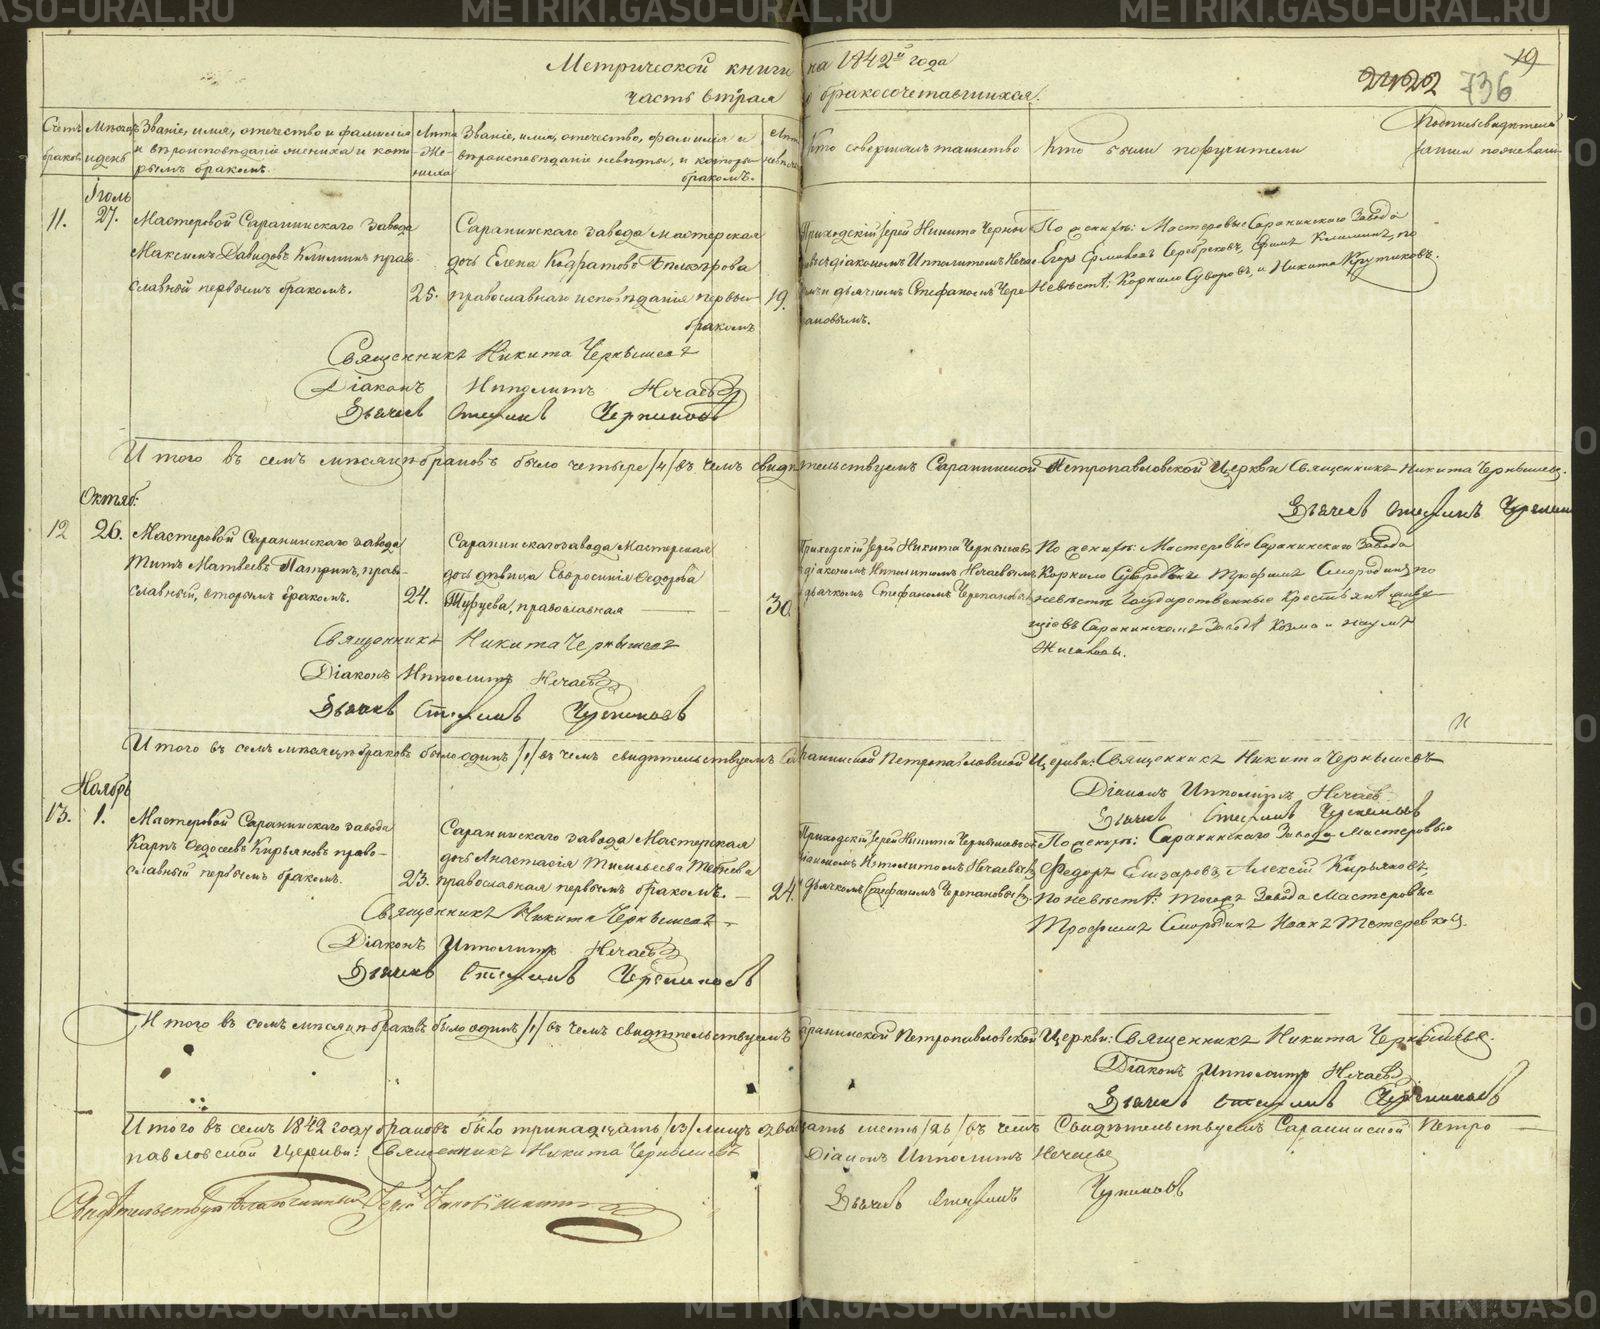 METRIKI.GASO-URAL.RU
Метрической книги на 1842й года
19
2422 736
часть вторая о бракосочетавшихся.
Счетъ браков
Мѣсяцъ и день
Званіе, имя, отчество и фамилія и вѣроисповѣданіе жениха и которымъ бракомъ.
Лѣта жениха
Званіе, имя, отчество, фамилія и вѣроисповѣданіе невѣсты, и которымъ бракомъ.
Лѣта невѣсты
Кто совершалъ таинство
Кто были поручители
Іюль
11. 27.
Мастеровой Саранинскаго завода
Максимъ Давидовъ Климинъ право-
славной первымъ бракомъ.
25.
Саранинскаго завода мастерская
дочь Елена
православнаго исповѣданія первымъ
бракомъ
19.
Приходскій Іерей Никита Черны-
діакономъ Ипполитомъ Нечае-
дьячкомъ Стефаномъ Чере-
пановымъ.
По женихѣ: Мастеровые Саранинскаго Завода
Егоръ Серебряковъ, Климинъ, по
Невѣстѣ: Корнило Суворовъ, и Никита Крутиковъ.
Священникъ Никита Чернышевъ
Діаконъ Ипполитъ Нечаевъ
Дьячекъ Стефанъ Черепановъ
Итого въ семъ мѣсяцѣ браковъ было четыре /4/ въ чемъ свидѣтельствуемъ Саранинской Петропавловской Церкви Священникъ Никита Чернышев.
Дьячекъ Стефанъ Черепан
Октяб:
12 26.
Мастеровой Саранинскаго завода
Титъ Матвѣевъ Патринъ, право-
славный, вторымъ бракомъ.
24.
Саранинскаго завода Мастерская
дочь дѣвица Евфросинія Ѳедорова
православная
30.
Приходскій Іерей Никита Чернышевъ
діакономъ Ипполитомъ Нечаевымъ
дьячкомъ Стефаномъ Черепановы
По женихѣ: Мастеровые Саранинскаго Завода
Корнило Суворовъ и Трофимъ Смородинъ, по
невѣстѣ Государственные Крестьяне живу-
щіе въ Саранинскомъ Заводѣ Козма и Наумъ
Священникъ Никита Чернышевъ
Діаконъ Ипполитъ Нечаевъ
Дьячекъ Стефанъ Черепановъ
Итого въ семъ мѣсяцѣ браковъ было одинъ /1/ въ чемъ свидѣтельствуемъ Саранинской Петропавловской Церкви: Священникъ Никита Чернышевъ
Діаконъ Ипполитъ Нечаев
Дьячекъ Стефанъ Черепановъ
Ноябрь
13. 1.
Мастеровой Саранинскаго завода
Карпъ Ѳедосеевъ Кирьяновъ право-
славный первымъ бракомъ.
23.
Саранинскаго завода Мастерская
дочь Анастасія
православная первымъ бракомъ.
24.
Приходскій Іерей Никита Чернышевъ
діакономъ Ипполитомъ Нечаевымъ
дьячкомъ Стефаномъ Черепановы
По женихѣ: Саранинскаго Завода Мастеровые
Федоръ Елизаровъ, Алексѣй Кирьяновъ,
по невѣстѣ: тогожъ Завода Мастеровые
Трофимъ Смородинъ Иванъ
Священникъ Никита Чернышевъ
Діаконъ Ипполитъ Нечаевъ
Дьячекъ Стефанъ Черепановъ
Итого въ семъ мѣсяцѣ браковъ было одинъ /1/ въ чемъ свидѣтельствуемъ Саранинской Петропавловской Церкви: Священникъ Никита Чернышев.
Діаконъ Ипполитъ Нечаевъ
Дьячекъ Стефанъ Черепановъ
Итого въ семъ 1842 году браковъ было тринадцать /13/ лицъ двадцать шесть /26/ въ чемъ Свидѣтельствуемъ Саранинской Петро
павловской Церкви: Священникъ Никита Чернышевъ Діаконъ Ипполитъ Нечаевъ
Дьячекъ Стефанъ Черепановъ
Свидѣтельствовалъ Благочинный Іерей